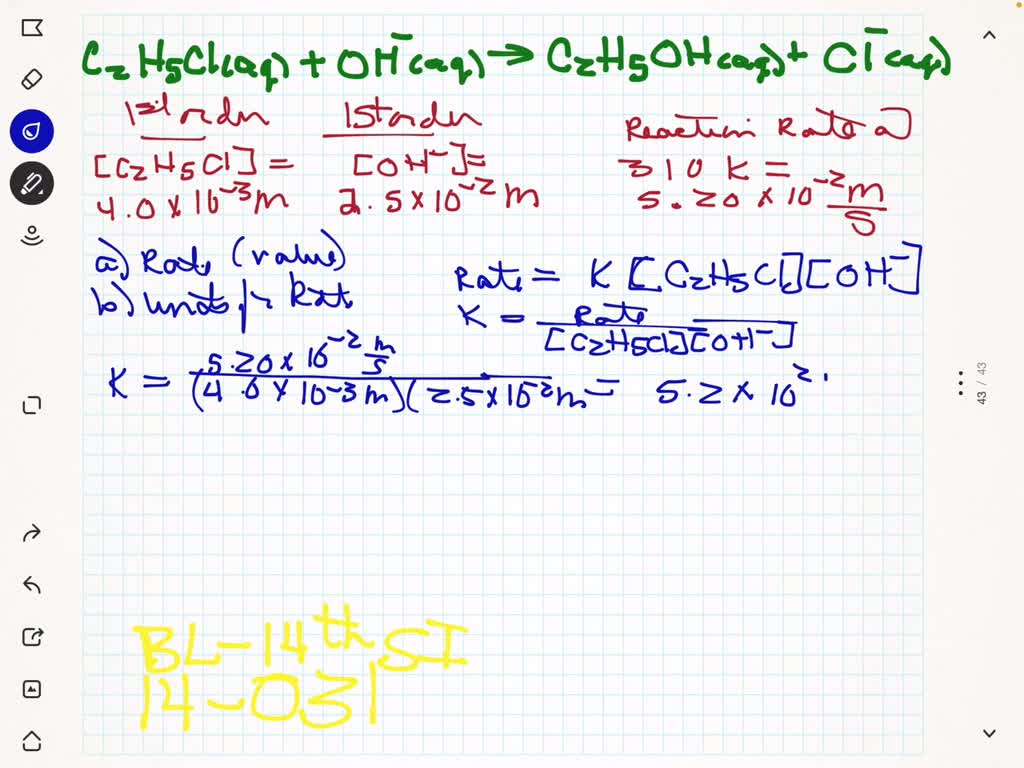 C₂H₅Cl(aq) + OH⁻(aq) → C₂H₅OH(aq) + Cl⁻(aq)
1st ordn 1st ordn Reaction Rate a)
[C₂H₅Cl] = [OH⁻] = 310 K =
4.0 × 10⁻³ m 2.5 × 10⁻² m 5.20 × 10⁻² m/s
a) Rate (value) Rate = K [C₂H₅Cl][OH⁻]
b) units for Rat K = Rate / [C₂H₅Cl][OH⁻]
K = 5.20 × 10⁻² m/s / (4.0 × 10⁻³ m)(2.5 × 10⁻² m = 5.2 × 10²
BL-14th SI
14-031
43 / 43